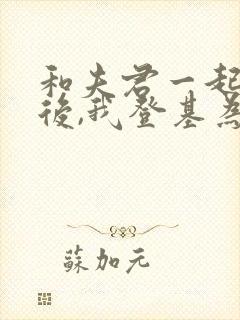 和夫君一起
後,我登基為
蘇加元